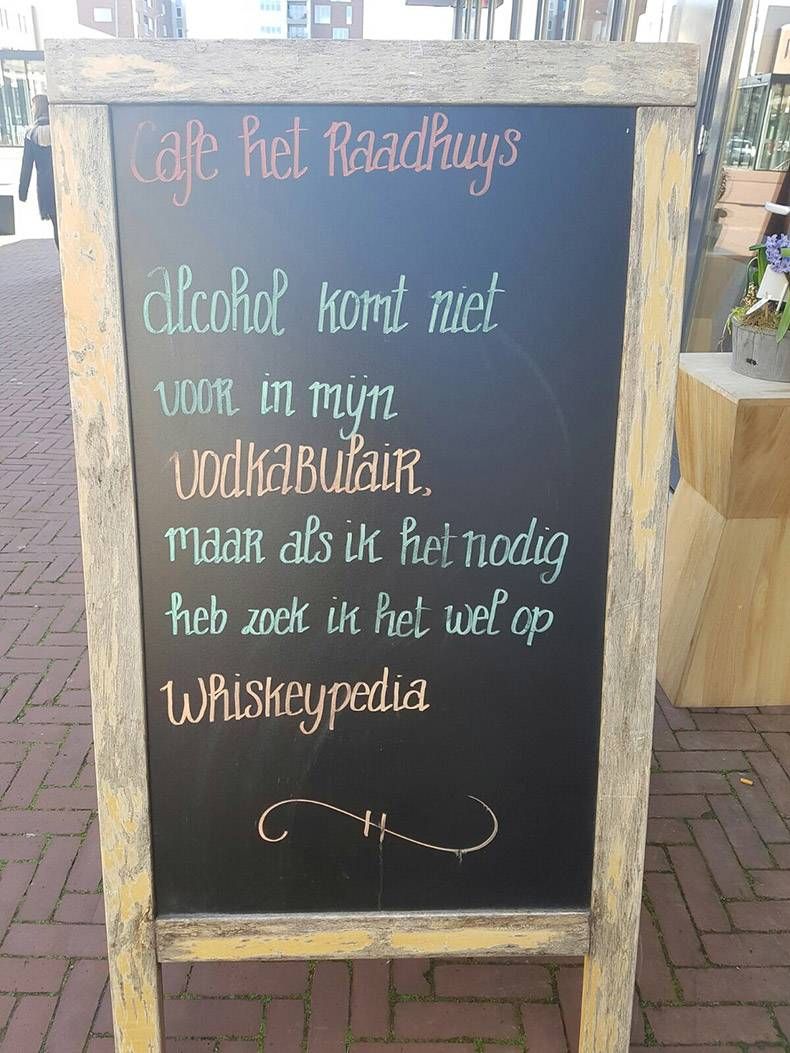 Cafe het Raadhuys
alcohol komt niet
voor in mijn
vodkabulair,
maar als ik het nodig
heb zoek ik het wel op
Whiskeypedia